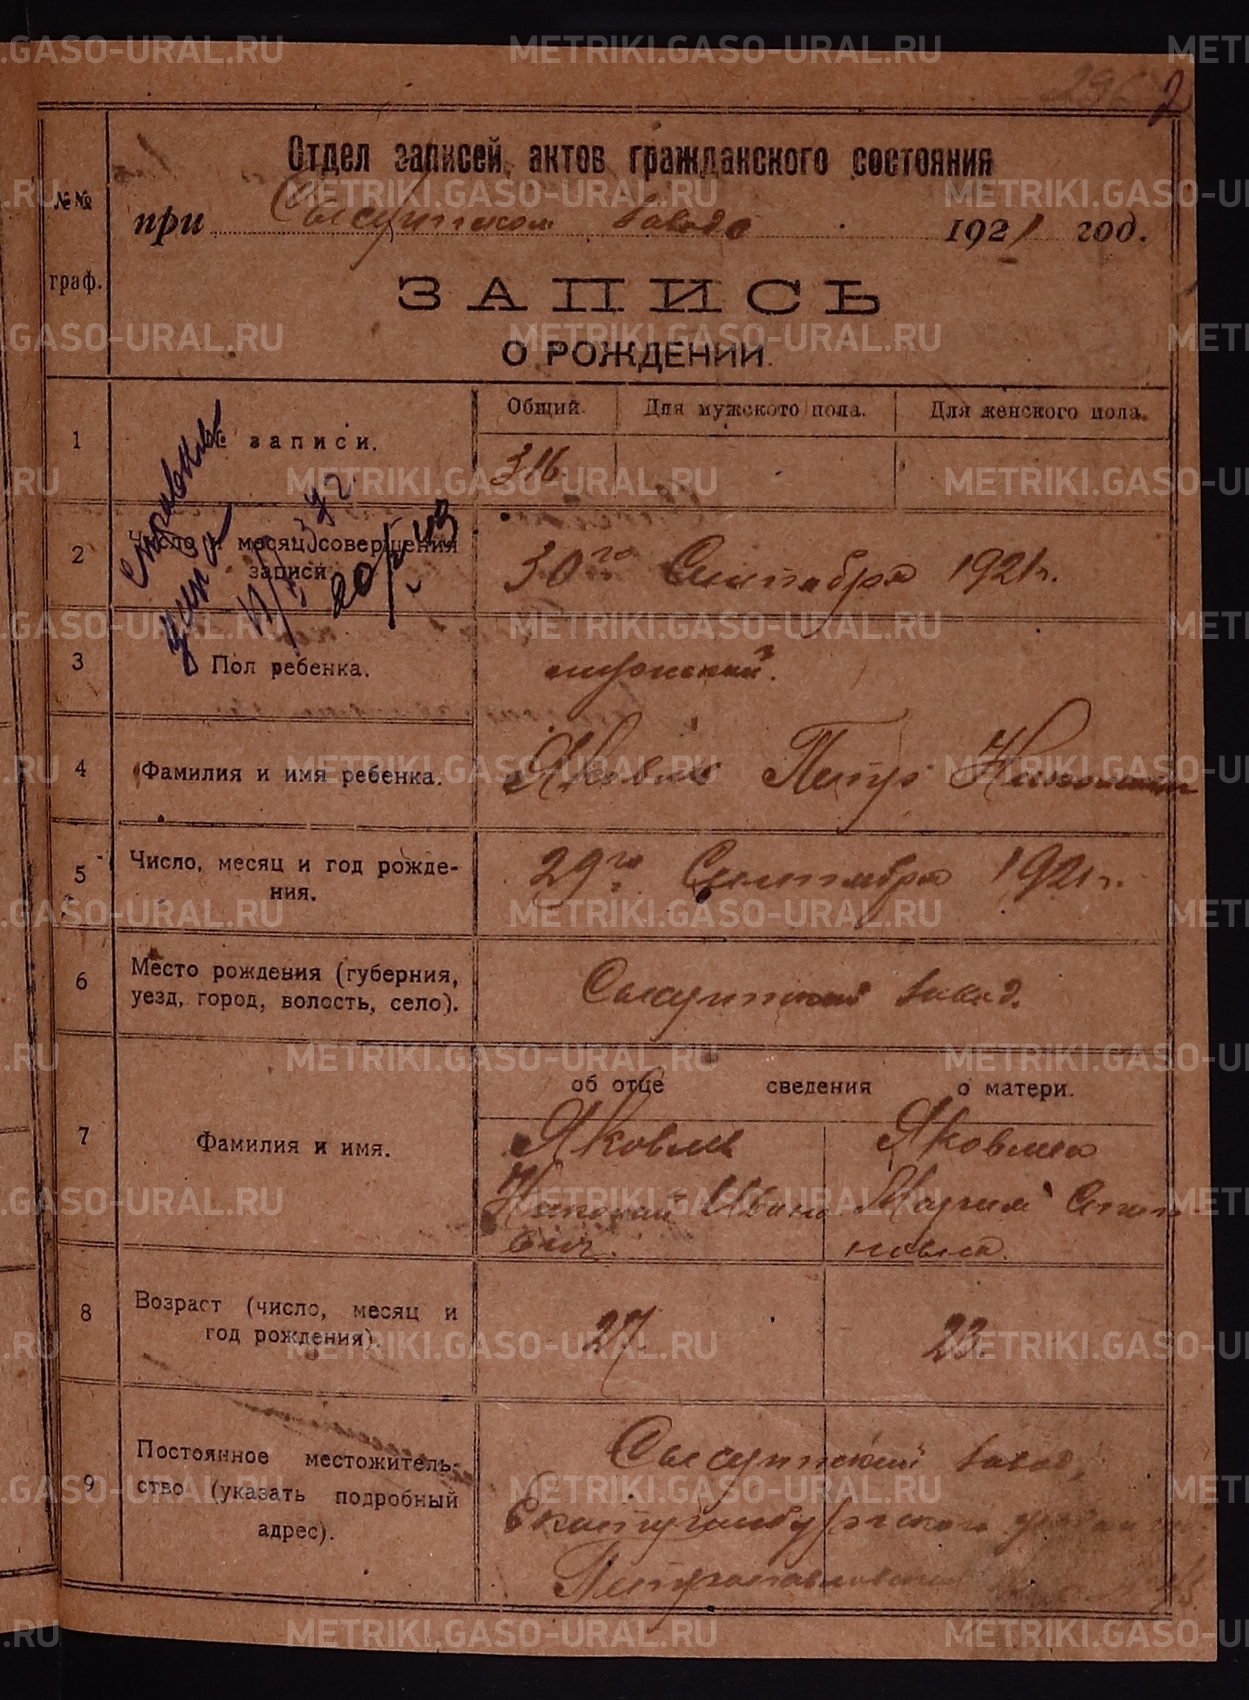 Отдел записей актов гражданского состояния
№№
при Сысертском заводе 1921 год.
граф.
ЗАПИСЬ
О РОЖДЕНИИ.
1
№ записи.
Общий. Для мужского пола. Для женского пола.
316.
2
Число и месяц совершения
записи
30го Сентября 1921 г.
Справка
20/V 43
3
Пол ребенка.
мужской.
4
Фамилия и имя ребенка.
Яковлев Петр Николаевич
5
Число, месяц и год рожде-
ния.
29го Сентября 1921 г.
6
Место рождения (губерния,
уезд, город, волость, село).
Сысертский завод.
об отце сведения о матери.
7
Фамилия и имя.
Яковлев
Николай Ивано
вич.
Яковлева
Мария Степа
новна.
8
Возраст (число, месяц и
год рождения)
27.
23.
9
Постоянное местожитель-
ство (указать подробный
адрес).
Сысертский завод,
Екатеринбургского уезда
Петропавловская
METRIKI.GASO-URAL.RU